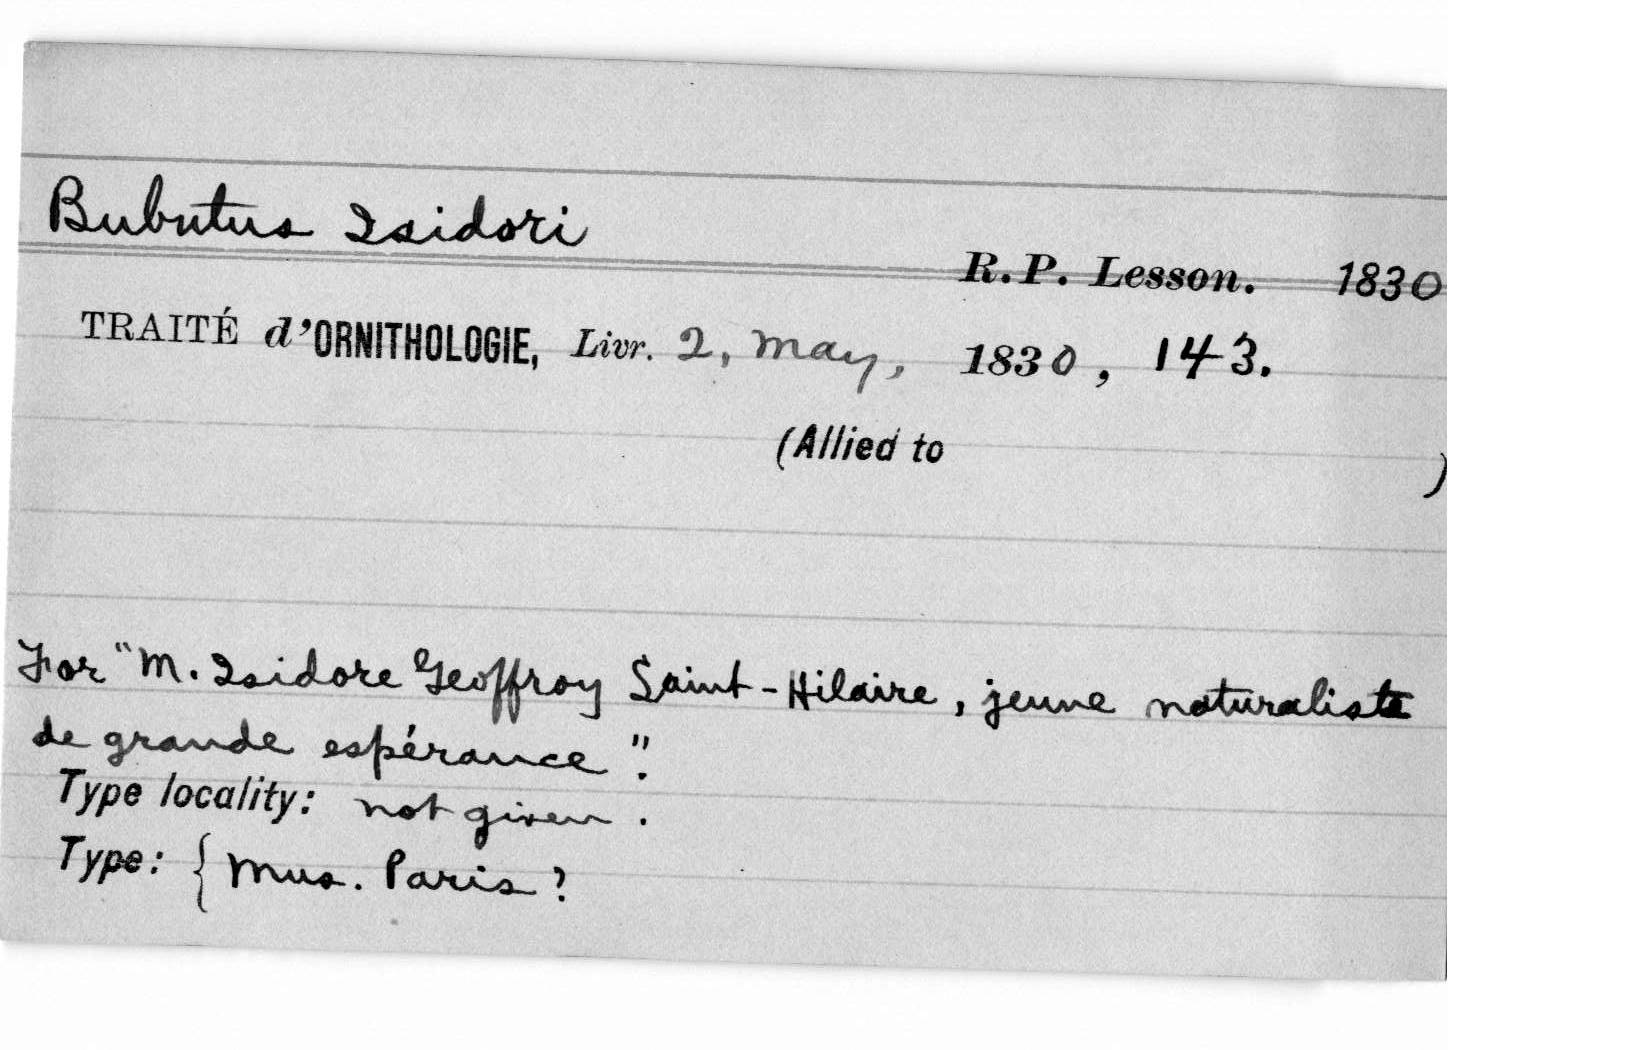 Bubutus Isidori
R.P. Lesson. 1830
TRAITÉ d'ORNITHOLOGIE, Livr. 2, May, 1830, 143.
(Allied to )
For "M. Isidore Geoffroy Saint-Hilaire, jeune naturaliste
de grande espérance".
Type locality: not given.
Type: { Mus. Paris?